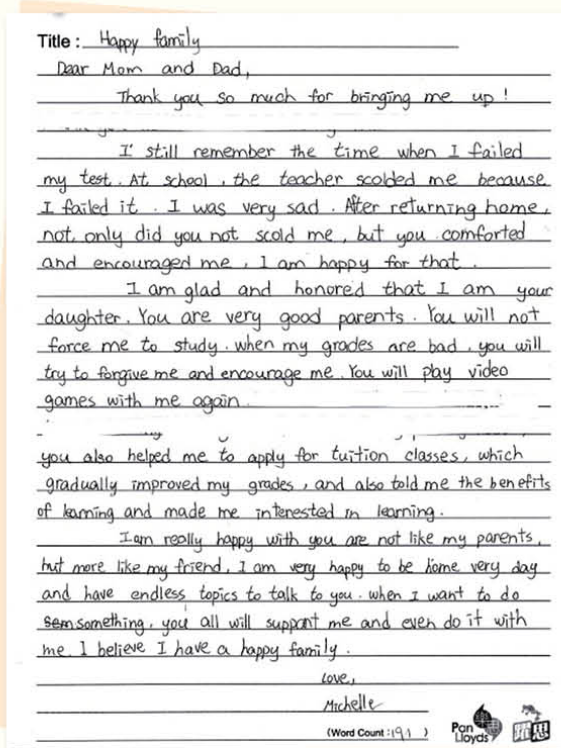 Title : Happy family
Dear Mom and Dad,
Thank you so much for bringing me up !
I' still remember the time when I failed
my test. At school, the teacher scolded me because
I failed it . I was very sad . After returning home,
not, only did you not scold me, but you comforted
and encouraged me, I am happy for that .
I am glad and honored that I am your
daughter. You are very good parents. You will not
force me to study. when my grades are bad, you will
try to forgive me and encourage me. You will play video
games with me again.
you also helped me to apply for tuition classes, which
gradually improved my grades, and also told me the benefits
of learning and made me interested in learning.
I am really happy with you are not like my parents,
but more like my friend. I am very happy to be home very day
and have endless topics to talk to you. when I want to do
something, you all will support me and even do it with
me. I believe I have a happy family.
Love,
Michelle
(Word Count : 191 )
Pan
Lloyds